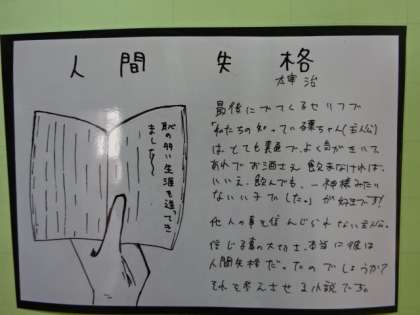 人間 失格
太宰 治
恥の多い生涯を送ってき
ました〜
最後にでてくるセリフで
「私たちの知っている葉ちゃん(主人公)
はとても素直で、よく気がきいて
あれでお酒さえ飲まなければ、
いいえ、飲んでも、神様みたい
ないい子でした。」が好きです!
他人の事を信じられない主人公。
信じる事の大切さ、本当に彼は
人間失格だったのでしょうか?
それを考えさせる小説です。